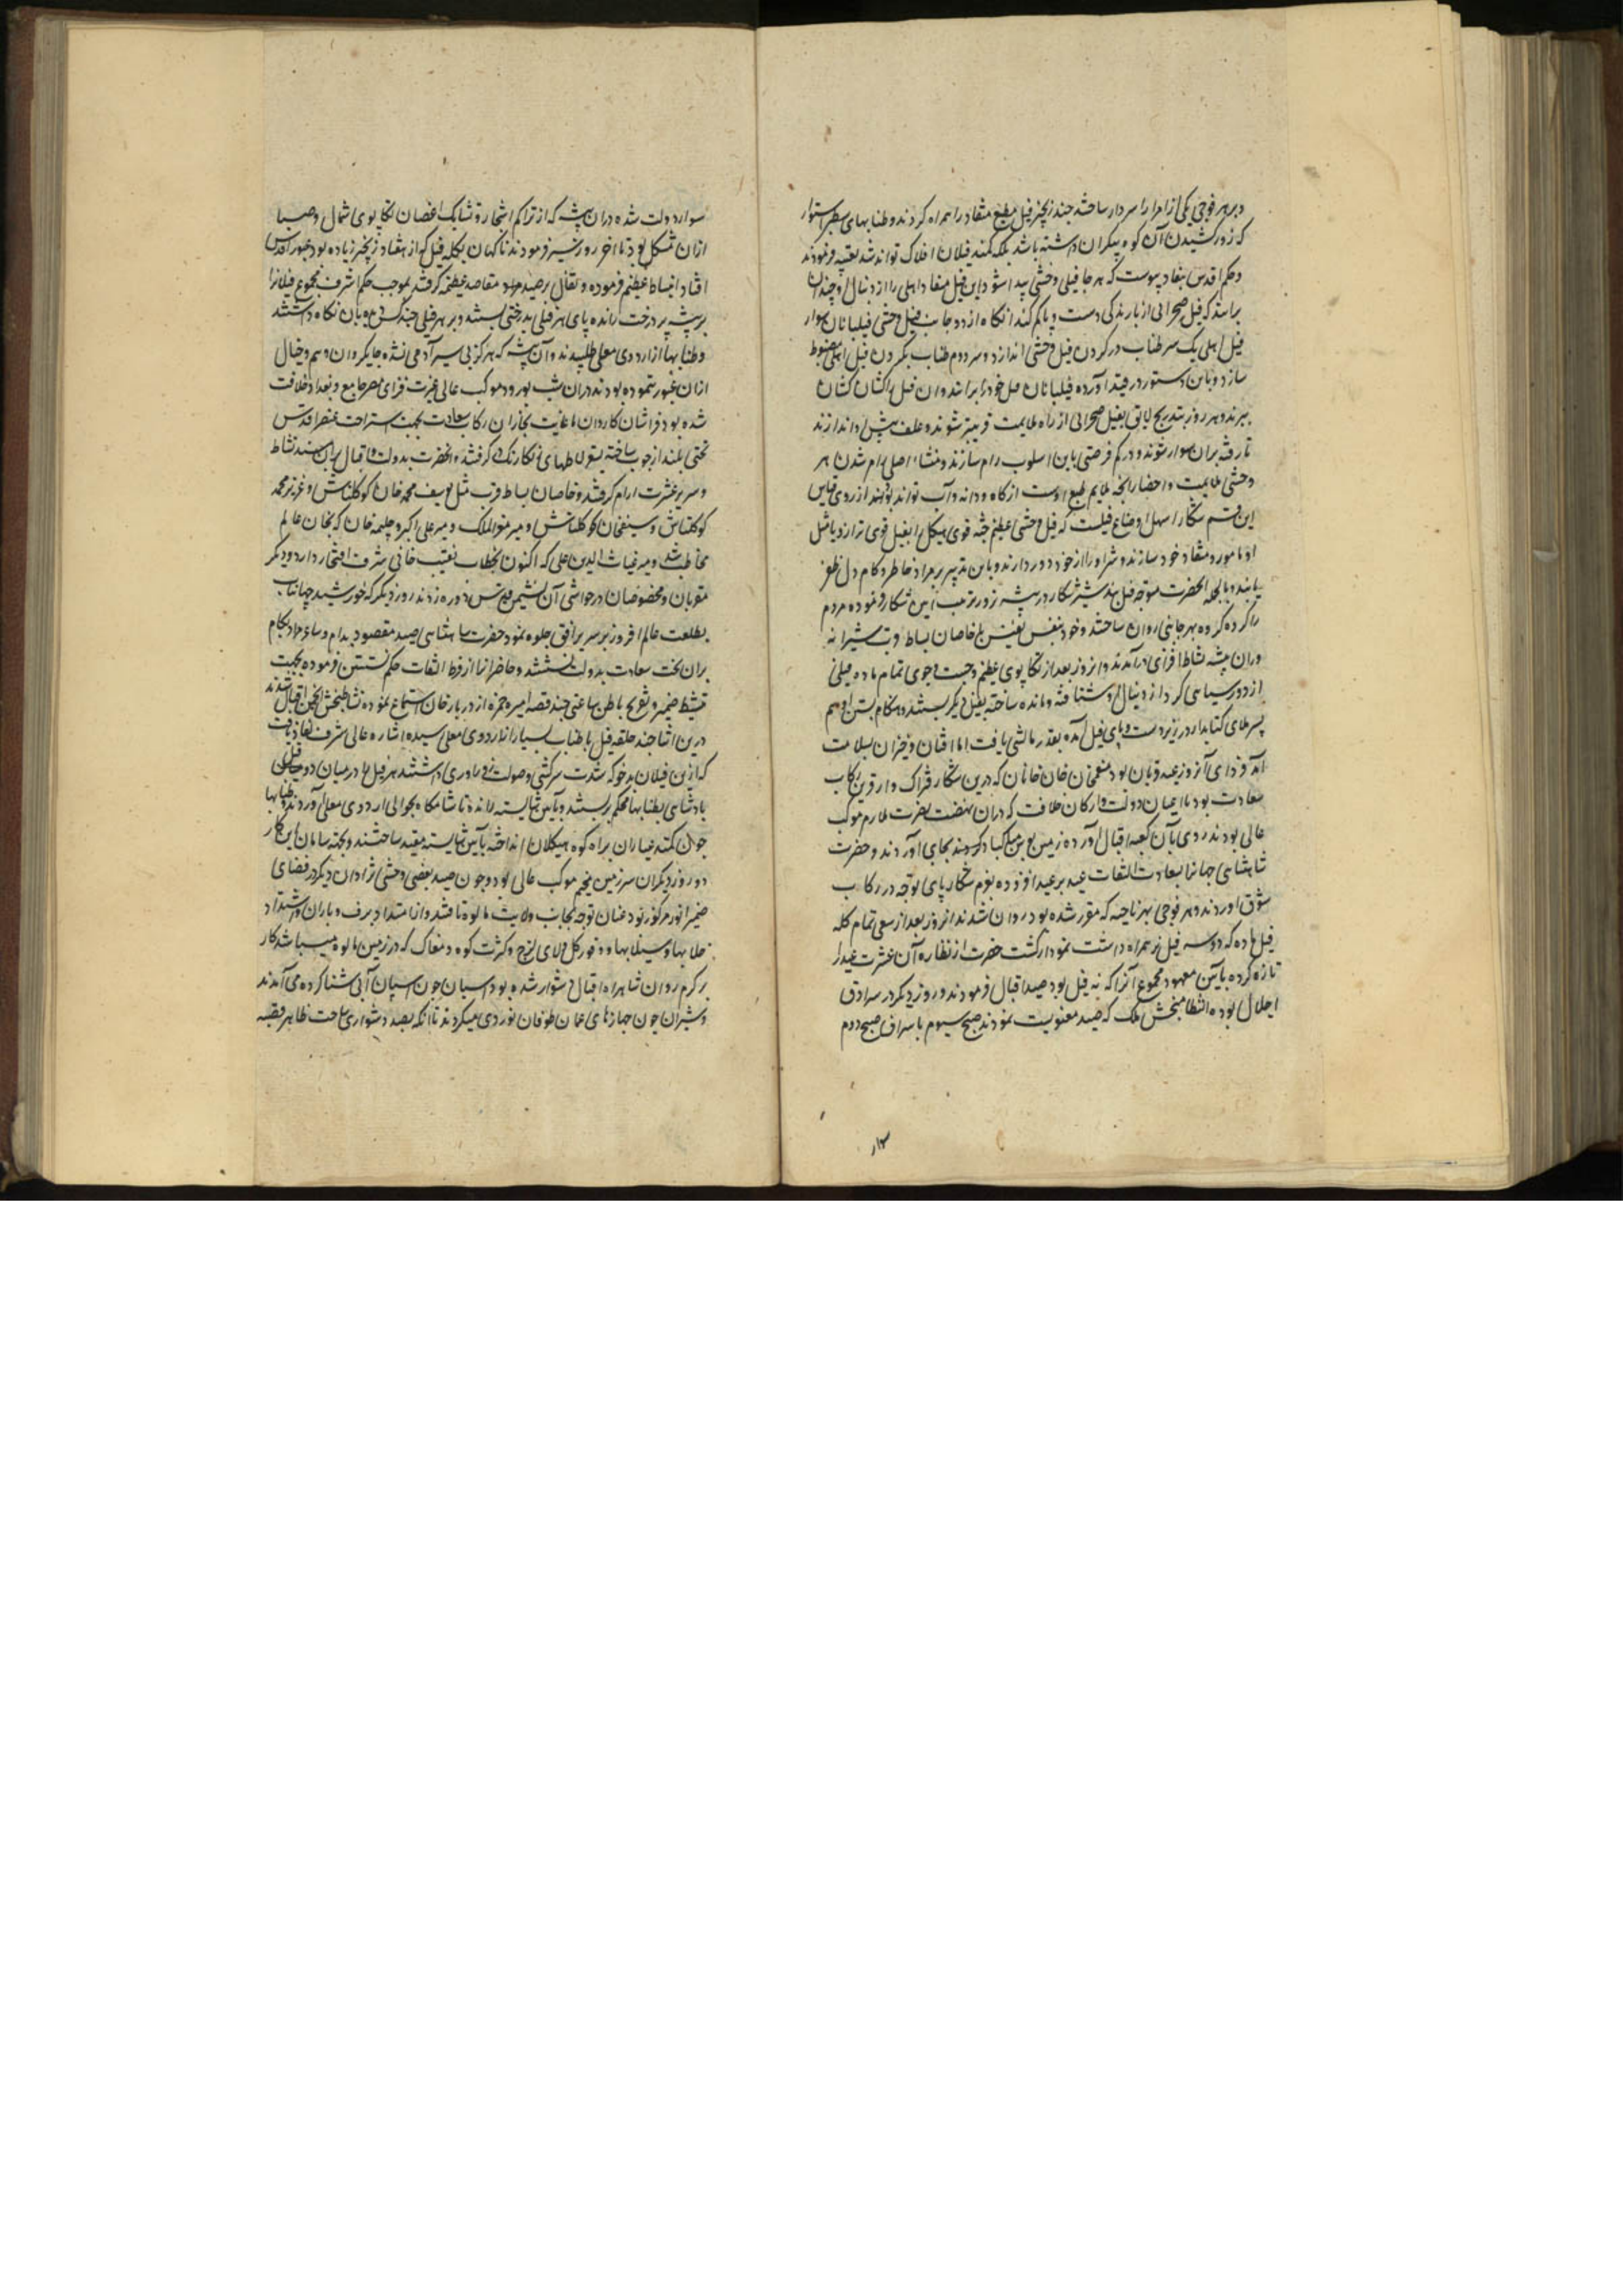 و بر هر فوجی یکی از امرا را سردار ساخته چند زنجیر فیل مطیع منقاد را همراه کردند و طنابهای سطبر استوار
که زور کشیدن آن کوه پیکران داشته باشد بلکه کمند فیلان افلاک تواند شد تعبیه فرمودند
و حکم اقدس بنفاد پیوست که هر جا فیلی وحشی پیدا شود این فیل منقاد اهلی را از دنبال او چندان
برانند که فیل صحرائی از بارندگی دست و پا کم کند آنگاه از دو جانب فیل وحشی فیلبانان سوار
فیل اهلی یک سر طناب در گردن فیل وحشی اندازد و سر دوم طناب بگردن فیل اهلی مضبوط
سازد و باین دستور در قید آورده فیلبانان فیل خود را برانند و آن فیل را کشان کشان
ببرند و هر روز بتدریج لایق بفیل صحرائی از راه ملایمت قریبتر شوند و علف پیش او اندازند
تا رفته بران سوار شوند و در کم فرصتی باین اسلوب رام سازند و منشاء اصلی رام شدن هر
وحشی ملایمت و احضار آنچه ملایم طبع اوست از کاه و دانه و آب تواند بود چند از روی قیاس
این قسم شکار اسهل اوضاع فیلست که فیل وحشی عظیم جثه قوی هیکل را بفیل قوی تر از و یا مثل
او مامور و منقاد خود سازند و شر او را از خود دور دارند و باین تدبیر بر مراد خاطر و کام دل ظفر
یابند و بالجمله آنحضرت متوجه فیل بند شیر شکار در بیشه زور ترتیب این شکار فرموده مردم
را کرده کرده بهر جانبی روان ساختند و خود بنفس نفیس با خاصان بساط قربت شیرانه
دران بیشه نشاط افزای درآمدند و آن روز بعد از تکاپوی عظیم و جست و جوی تمام ماده فیلی
از دور سیاهی کرد از دنبال او شتافته و مانده ساخته بفیل دیگر بستند و هنگام بستن ادهم
پسر ملای کتابدار در زیر دست و پای فیل آمده بقدر مالشی یافت اما افتان و خیزان بسلامت
آمد فردای آنروز عید قربان بود منعم خان خان خانان که درین شکار فتراک وار قرین رکاب
سعادت بود با اعیان دولت و ارکان خلافت که دران نهضت بحضرت ملازم موکب
عالی بودند روی بآن کعبه اقبال آورده زمین بوس مبارکباد بجای آوردند و حضرت
شاهنشاهی جهانرا بسعادت التفات عید بر عید افزوده بعزم شکار پای توجه در رکاب
شوق آوردند و هر فوجی بهر ناحیه که مقرر شده بود روان شدند آنروز بعد از سعی تمام کله
فیل ماده که دو سه فیل نر همراه داشت نمودار گشت حضرت از نظاره آن عشرت عید را
تازه کرده بآیین معهود مجموع آنرا که نه فیل بود صید اقبال فرمودند و روز دیگر در سرادق
اجلال بوده انتظام بخش ملک که صید معنویت نمودند صبح سیوم با سراف صبح دوم
سوار
سوار دولت شده دران بیشه که از تراکم اشجار و تشابک اغصان تکاپوی شمال و صبا
ازان مشکل بود تا آخر روز سیر فرمودند ناگهان بکله فیل که از هشتاد زنجیر زیاده بود عبور اقدس
افتاد انبساط عظیم فرموده و تفال بر صید مقاصد عظیمه گرفتند بموجب حکم اشرف مجموع فیلانرا
بر بیشه پر درخت رانده پای هر فیلی بدرختی بستند و بر هر فیلی چند کس نگاه داشتند
و طنابها از اردوی معلی طلبیدند و آن بیشه که هرگز پی سپر آدمی نشده جایگردان وهم و خیال
ازان عبور ننموده بودند دران شب بورود موکب عالی غیرت افزای مصر جامع و بغداد خلافت
شده بود فراشان کاردان رکاب سعادت بجهت استراحت عنصر اقدس
تختی بلند از چوب ساخته بسقرلاطهای رنگارنگ گرفتند آنحضرت بدولت و اقبال بران مسند نشاط
و سریر عشرت آرام گرفتند و خاصان بساط قرب مثل یوسف محمد خان کوکلتاش و عزیز محمد
کوکلتاش و سیف خان کوکلتاش و میر معز الملک و میر علی اکبر و چلمه خان که بخان عالم
مخاطب شد و میر غیاث الدین علی که اکنون بخطاب نقیب خانی شرف افتخار دارد و دیگر
مقربان و مخصوصان در حواشی آن نشیمن قدس دوره زدند روز دیگر که خورشید جهانتاب
بطلعت عالم افروز بر سریر افق جلوه نمود حضرت شاهنشاهی صید مقصود بدام و ساغر مراد بکام
بران تخت سعادت بدولت نشستند و حاضرانرا از فرط التفات حکم نشستن فرموده بجهت
تنشیط ضمیر و تفریح باطن ساعتی چند قصه امیر حمزه از دربار خان استماع نموده نشاط بخش انجمن اقبال شدند
درین اثنا چند حلقه فیل با طناب بسیار از اردوی معلی رسیده اشاره عالی شرف نفاذ یافت
که ازین فیلان بدخو که شدت سرکشی و صولت زورآوری داشتند هر فیل را در میان دو فیل
پادشاهی بطنابها محکم بربستند و بآیین شایسته رانده تا شامگاه بحوالی اردوی معلی آوردند و طنابها
چون کمند عیاران براه کوه پیکلان انداخته بآیین شایسته مقید ساختند و بجهت سامان این کار
دو روز دیگر آن سرزمین مخیم موکب عالی بود و چون صید بعضی وحشی نژادان دیگر در فضای
ضمیر انور مرکوز بود عنان توجه بجانب ولایت مالوه تافتند و از امتداد برف و باران و اشتداد
خلابها و سیلابها و وفور گل و لای لزج و کثرت کوه و مغاک که در زمین مالوه میباشد کار
بر گرم روان شاهراه اقبال دشوار شده بود اسپان چون اسپان آبی شنا کرده می آمدند
و شیران چون جهازهای عمان طوفان نوردی میکردند تا آنکه بصد دشواری ساحت ظاهر قصبه